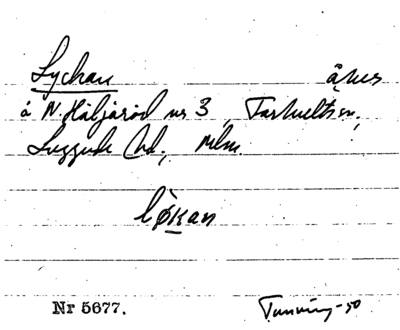 Lyckan åker
å N. Häljaröd nr 3, Farhults sn,
Luggude hd, Mlm.
lø̀kan
Nr 5677. Tunving -50